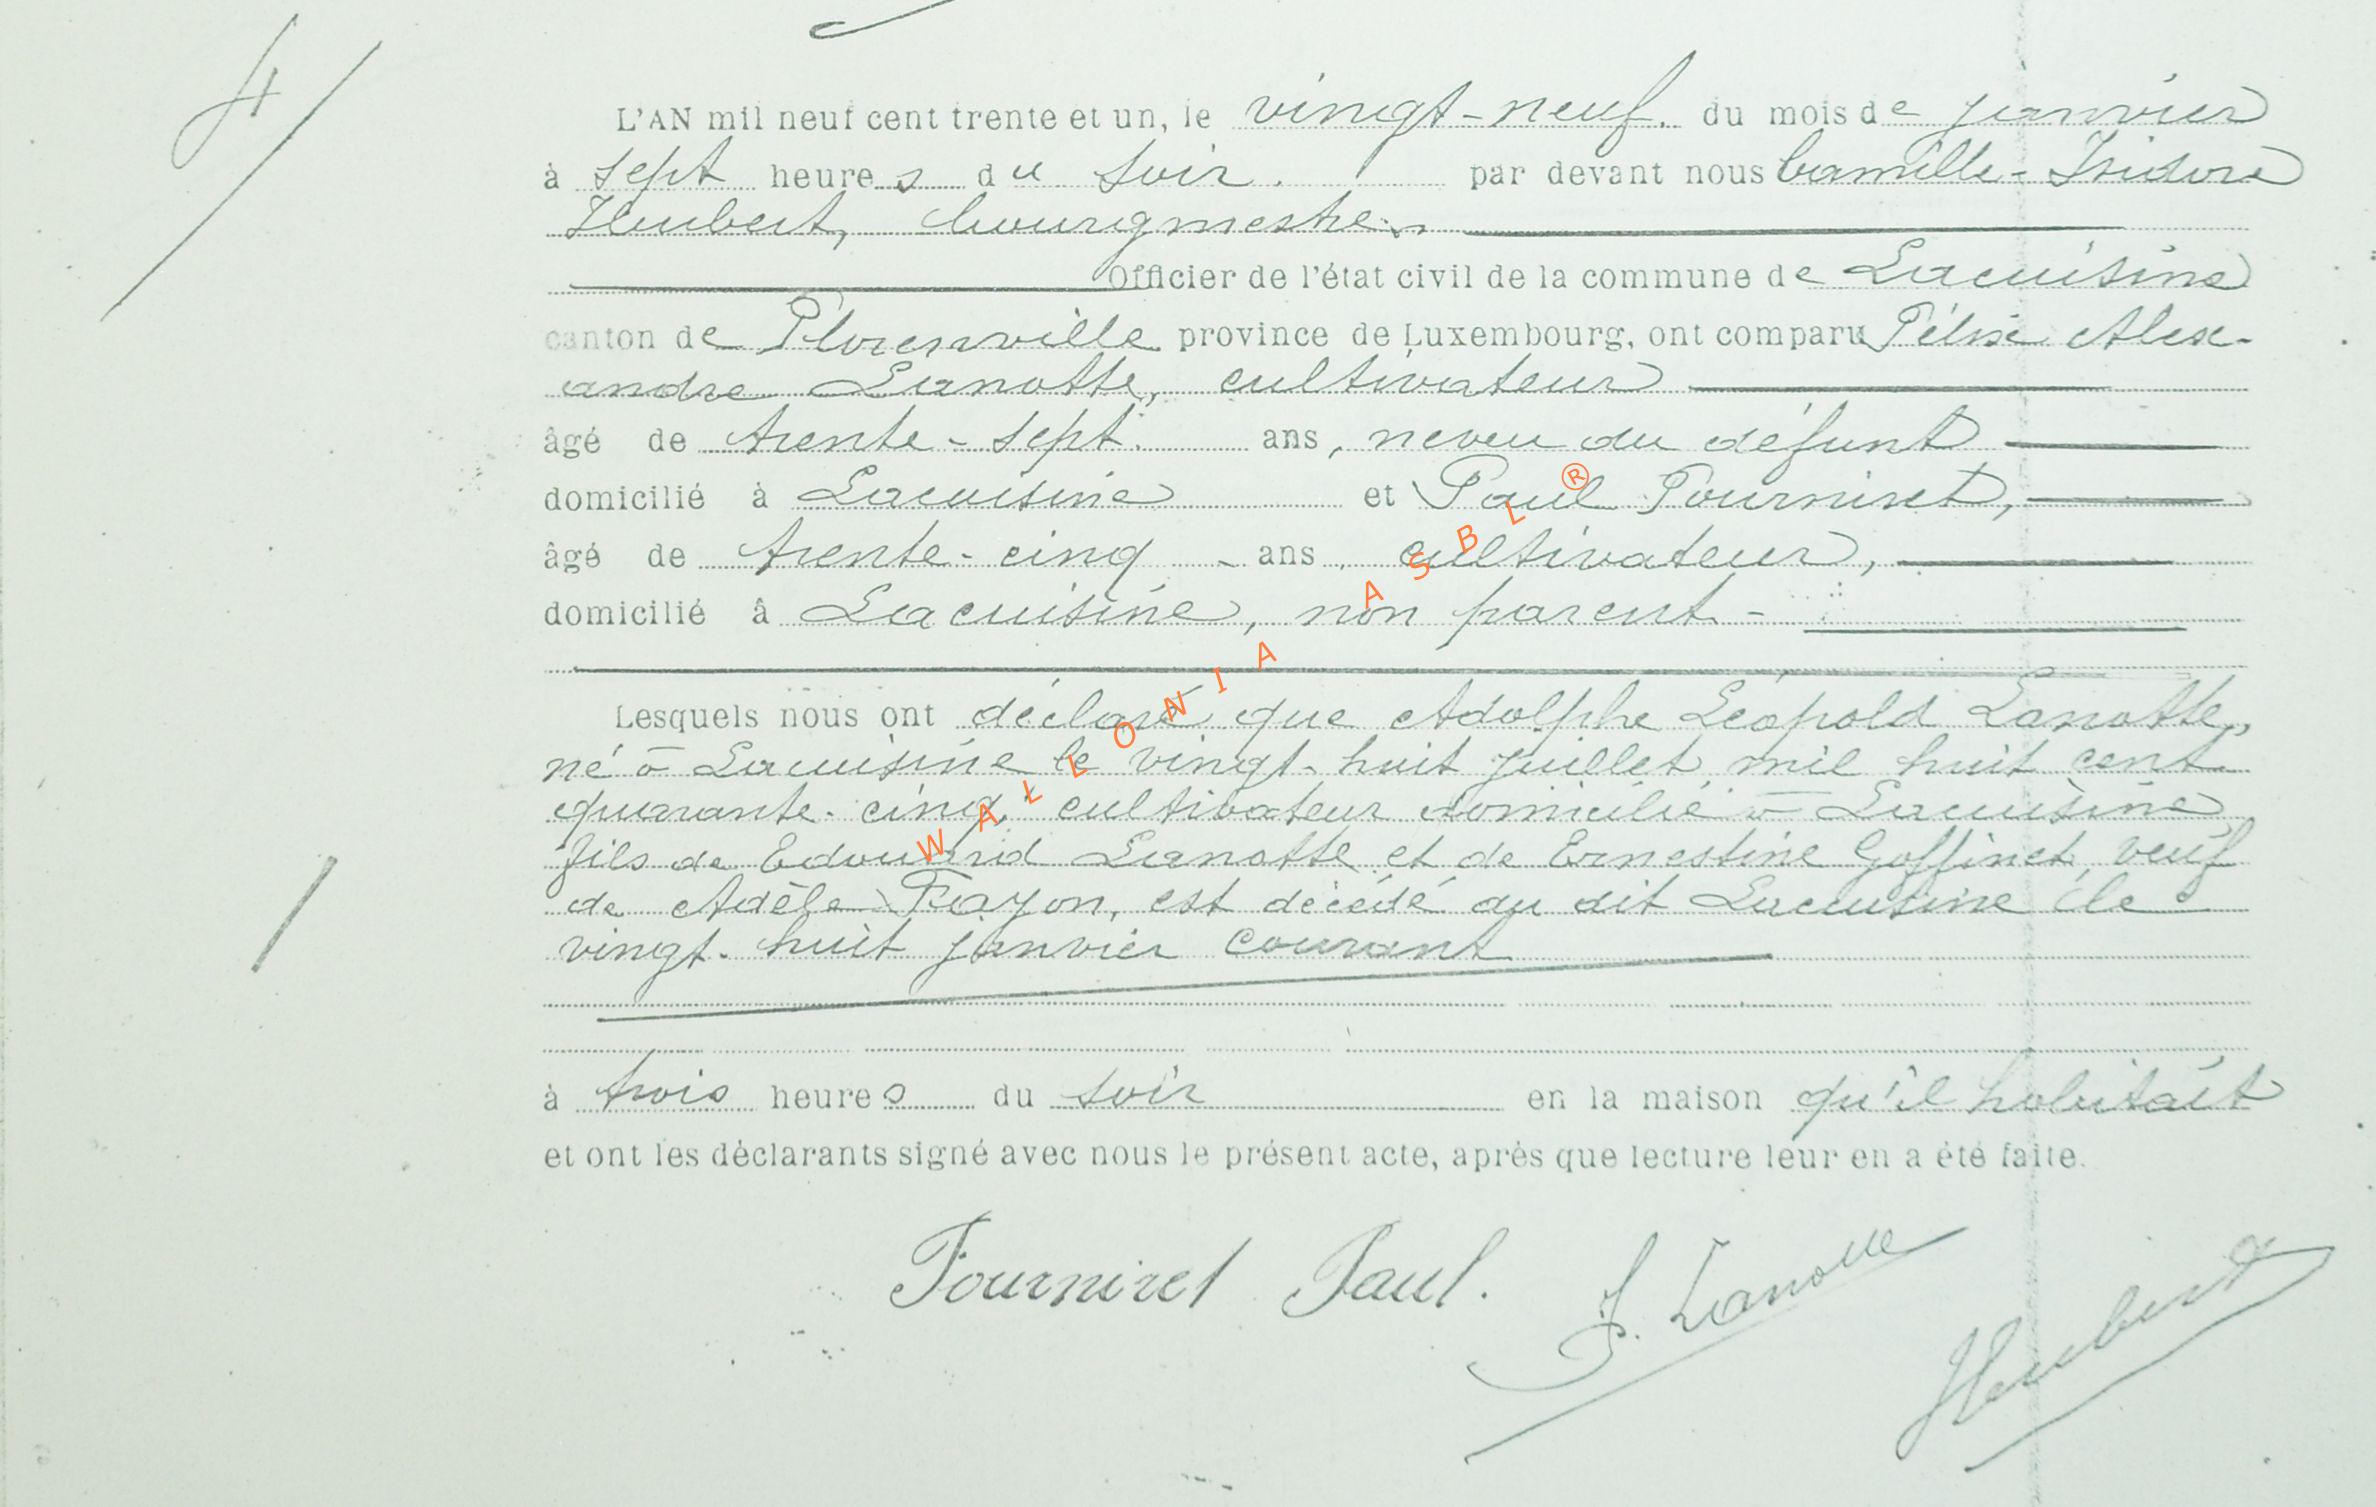 4
L'AN mil neuf cent trente et un, le vingt-neuf. du mois de janvier
à sept heures du soir. par devant nous Camille-Isidore
Hubert, bourgmestre,
Officier de l'état civil de la commune de Lacuisine
canton de Florenville province de Luxembourg, ont comparu Félix Alex-
andre Lanotte, cultivateur
âgé de trente-sept. ans, neveu du défunt
domicilié à Lacuisine et Paul Fourniret,
âgé de trente-cinq ans, cultivateur,
domicilié à Lacuisine, non parent-
Lesquels nous ont déclaré que Adolphe Léopold Lanotte,
né à Lacuisine le vingt-huit juillet mil huit cent
quarante-cinq, cultivateur domicilié à Lacuisine
fils de Edouard Lanotte et de Ernestine Goffinet, veuf
de Adèle Fayon, est décédé au dit Lacuisine le
vingt-huit janvier courant
à trois heures du soir en la maison qu'il habitait
et ont les déclarants signé avec nous le présent acte, après que lecture leur en a été faite.
Fourniret Paul. F. Lanotte Hubert
WALLONIA ASBL ®